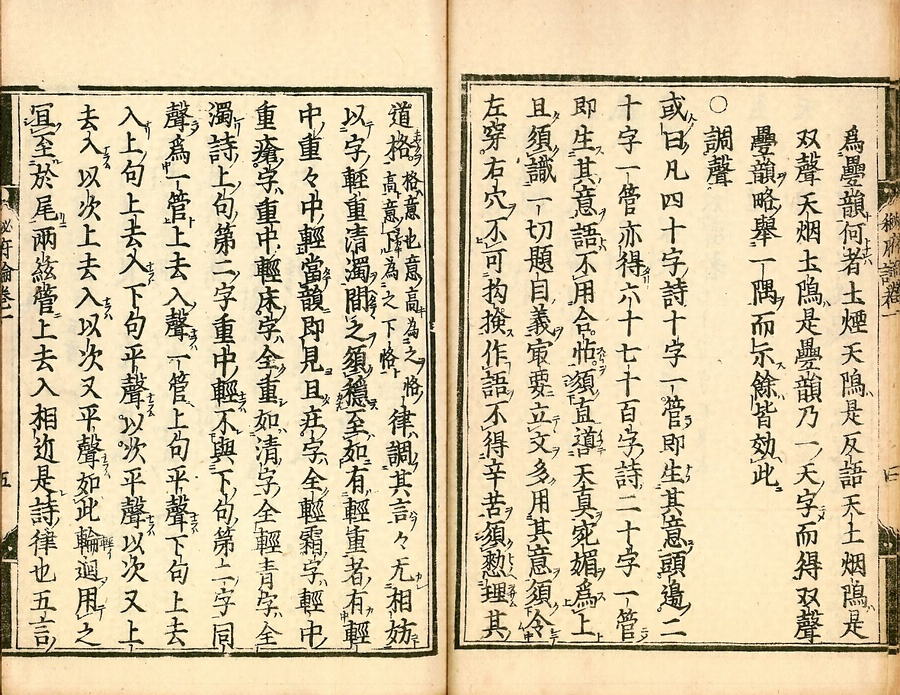 為疊韻何者土煙天隖是反語天土烟隖是
双聲天烟土隖是疊韻乃一天字而得双聲
疊韻略舉一隅而示餘皆効此
○
調聲
或曰凡四十字詩十字一管即生其意頭邊二
十字一管亦得六十七十百字詩二十字一管
即生其意語不用合帖須直道天真宛媚為上
且須識一切題目義㝡要立文多用其意須令
左穿右穴不可拘撿作語不得辛苦須懃理其
道格格意也意高為之格高意下為之下格律調其言々无相妨
以字輕重清濁間之須穩至如有輕重者有輕
中重々中輕當韻即見且疘字全輕霜字輕中
重瘡字重中輕床字全重如清字全輕青字全
濁詩上句第二字重中輕不與下句第二字同
聲為一管上去入聲一管上句平聲下句上去
入上句上去入下句平聲以次平聲以次又上
去入以次上去入以次又平聲如此輪廻用之
冝至於尾兩絃管上去入相近是詩律也五言
秘府論卷一
五